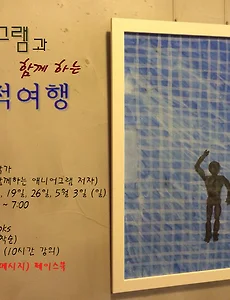 그램과
함께 하는
적여행
함께하는 애니어그램 저자)
, 19일, 26일, 5월 3일 (일)
~ 7:00
oks
착순)
(10시간 강의)
메시지) 페이스북